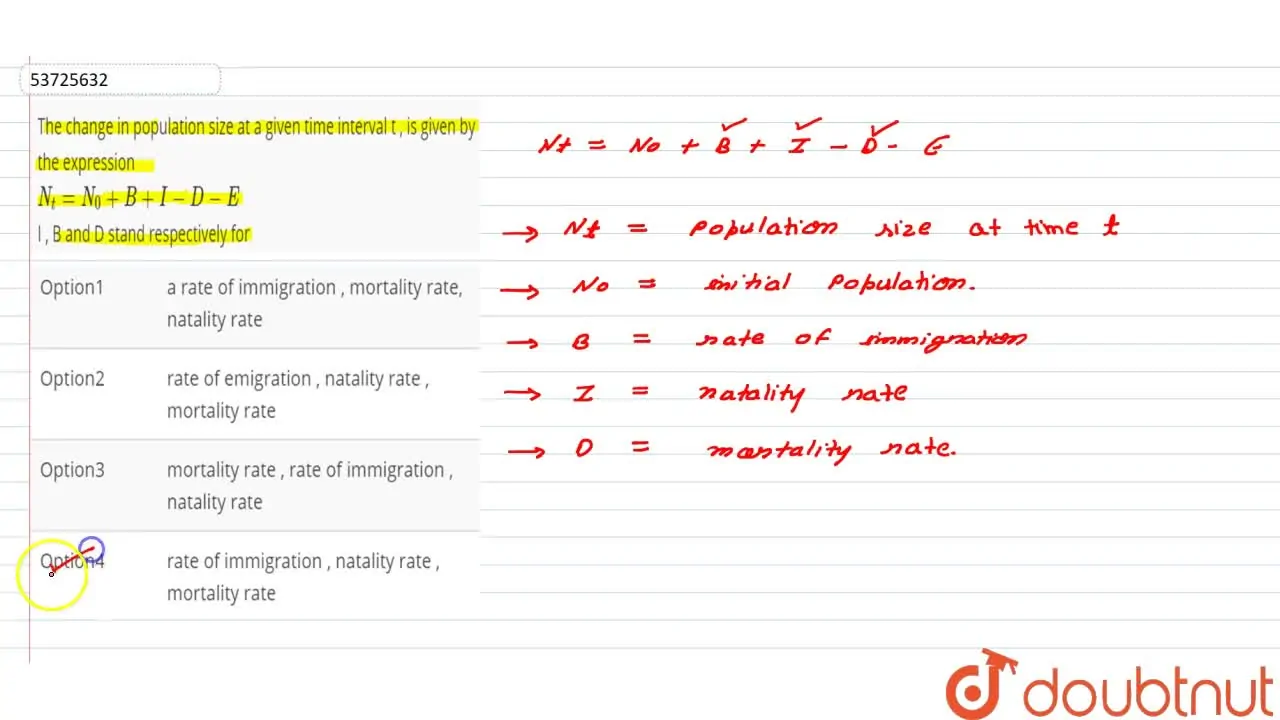 53725632
The change in population size at a given time interval t , is given by
the expression
N_t = N_0 + B + I − D − E
I , B and D stand respectively for
Option1 a rate of immigration , mortality rate,
natality rate
Option2 rate of emigration , natality rate ,
mortality rate
Option3 mortality rate , rate of immigration ,
natality rate
Option4 rate of immigration , natality rate ,
mortality rate
Nt = No + B + I - D - E
→ Nt = Population size at time t
→ No = initial Population.
→ B = rate of immigration
→ I = natality rate
→ D = mortality rate.
doubtnut